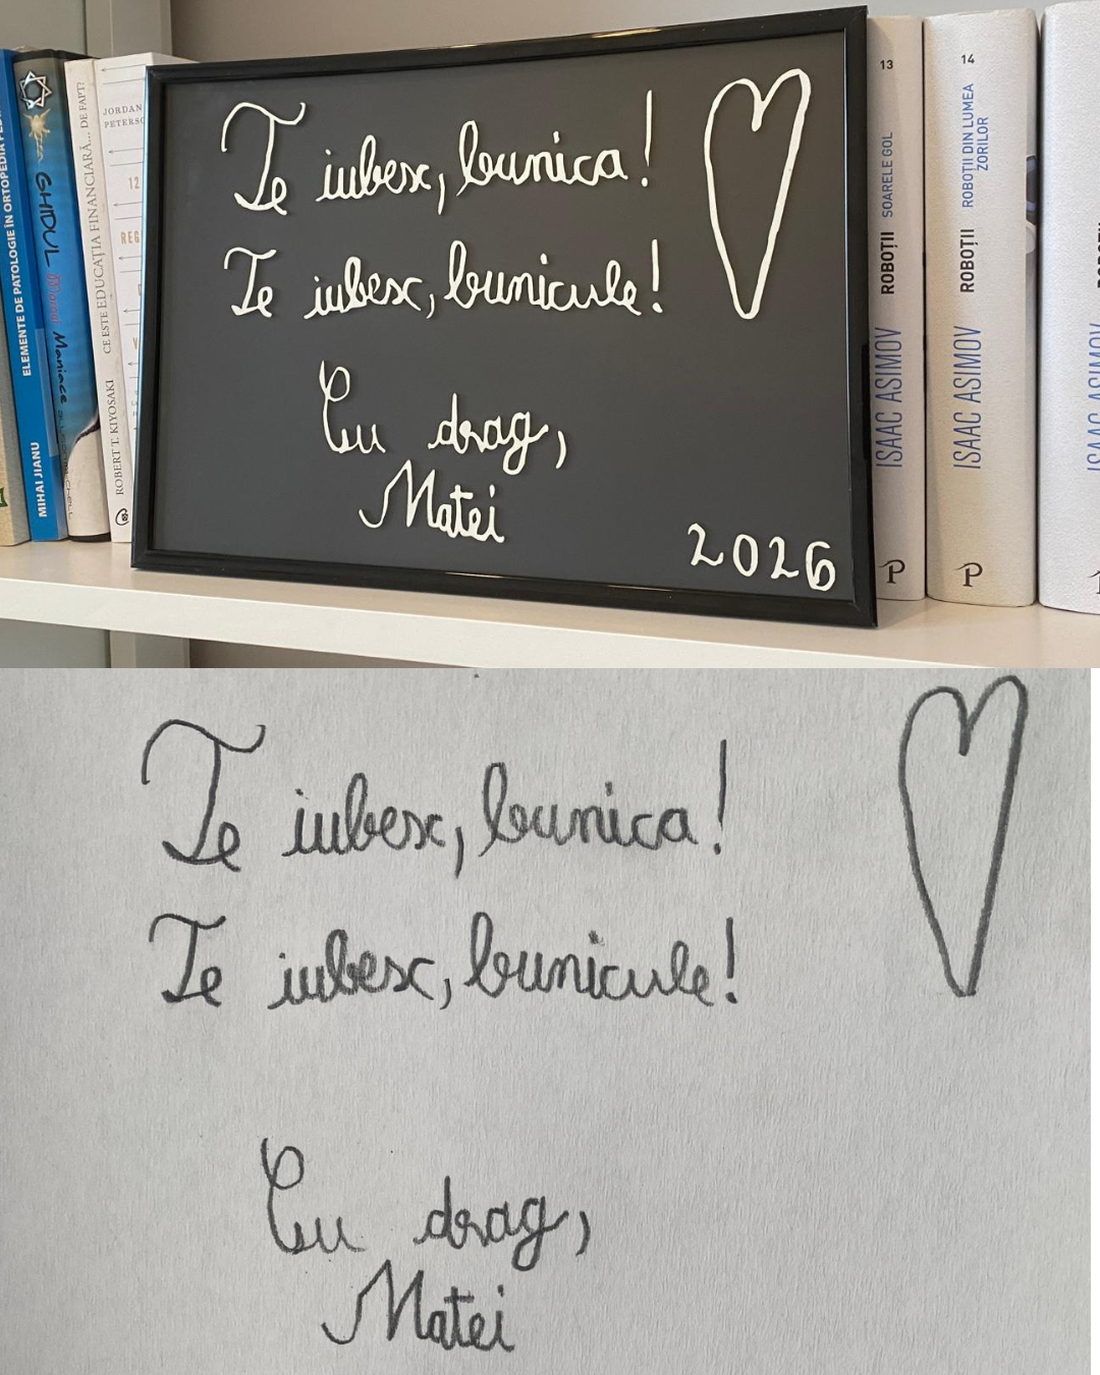 ELEMENTE DE PATOLOGIE ÎN ORTOPEDIA
MIHAI JIANU
GHIDUL
Maniace
CE ESTE EDUCAȚIA FINANCIARĂ... DE FAPT?
ROBERT T. KIYOSAKI
JORDAN
12
REG
Te iubesc, bunica!
Te iubesc, bunicule!
Cu drag,
Matei
2026
13
ISAAC ASIMOV ROBOȚII SOARELE GOL
P
14
ISAAC ASIMOV ROBOȚII ROBOȚII DIN LUMEA
ZORILOR
P
Te iubesc, bunica!
Te iubesc, bunicule!
Cu drag,
Matei